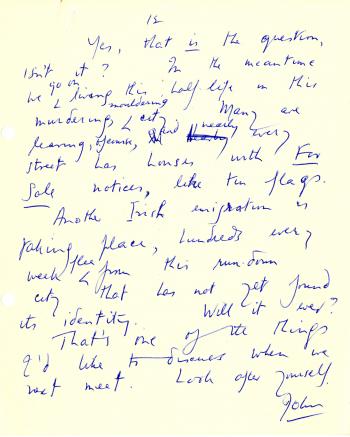 12
Yes, that is the question,
isn't it? In the meantime
we go on living this half-life in this
murdering smouldering city. Many are
leaving, of course, and nearly every
street has houses with For
Sale notices, like tin flags.
Another Irish emigration is
taking place, hundreds every
week flee from this run-down
city that has not yet found
its identity. Will it ever?
That's one of the things
I'd like to discuss when we
next meet. Look after yourself.
John